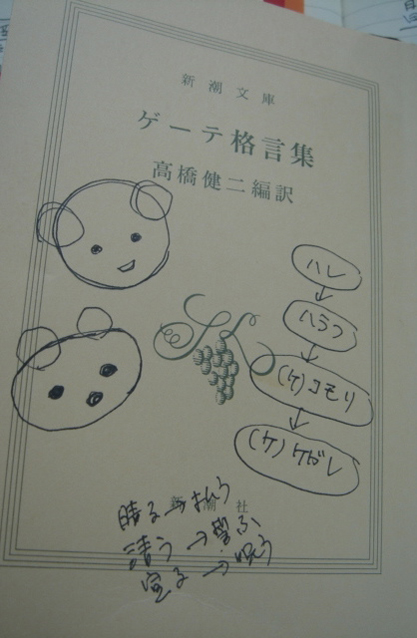 新潮文庫
ゲーテ格言集
高橋健二編訳
ハレ
↓
ハラフ
↓
(ケ)コモリ
↓
(ケ)ケガレ
新潮社
晴る→払う
請う→
宣る→呪う